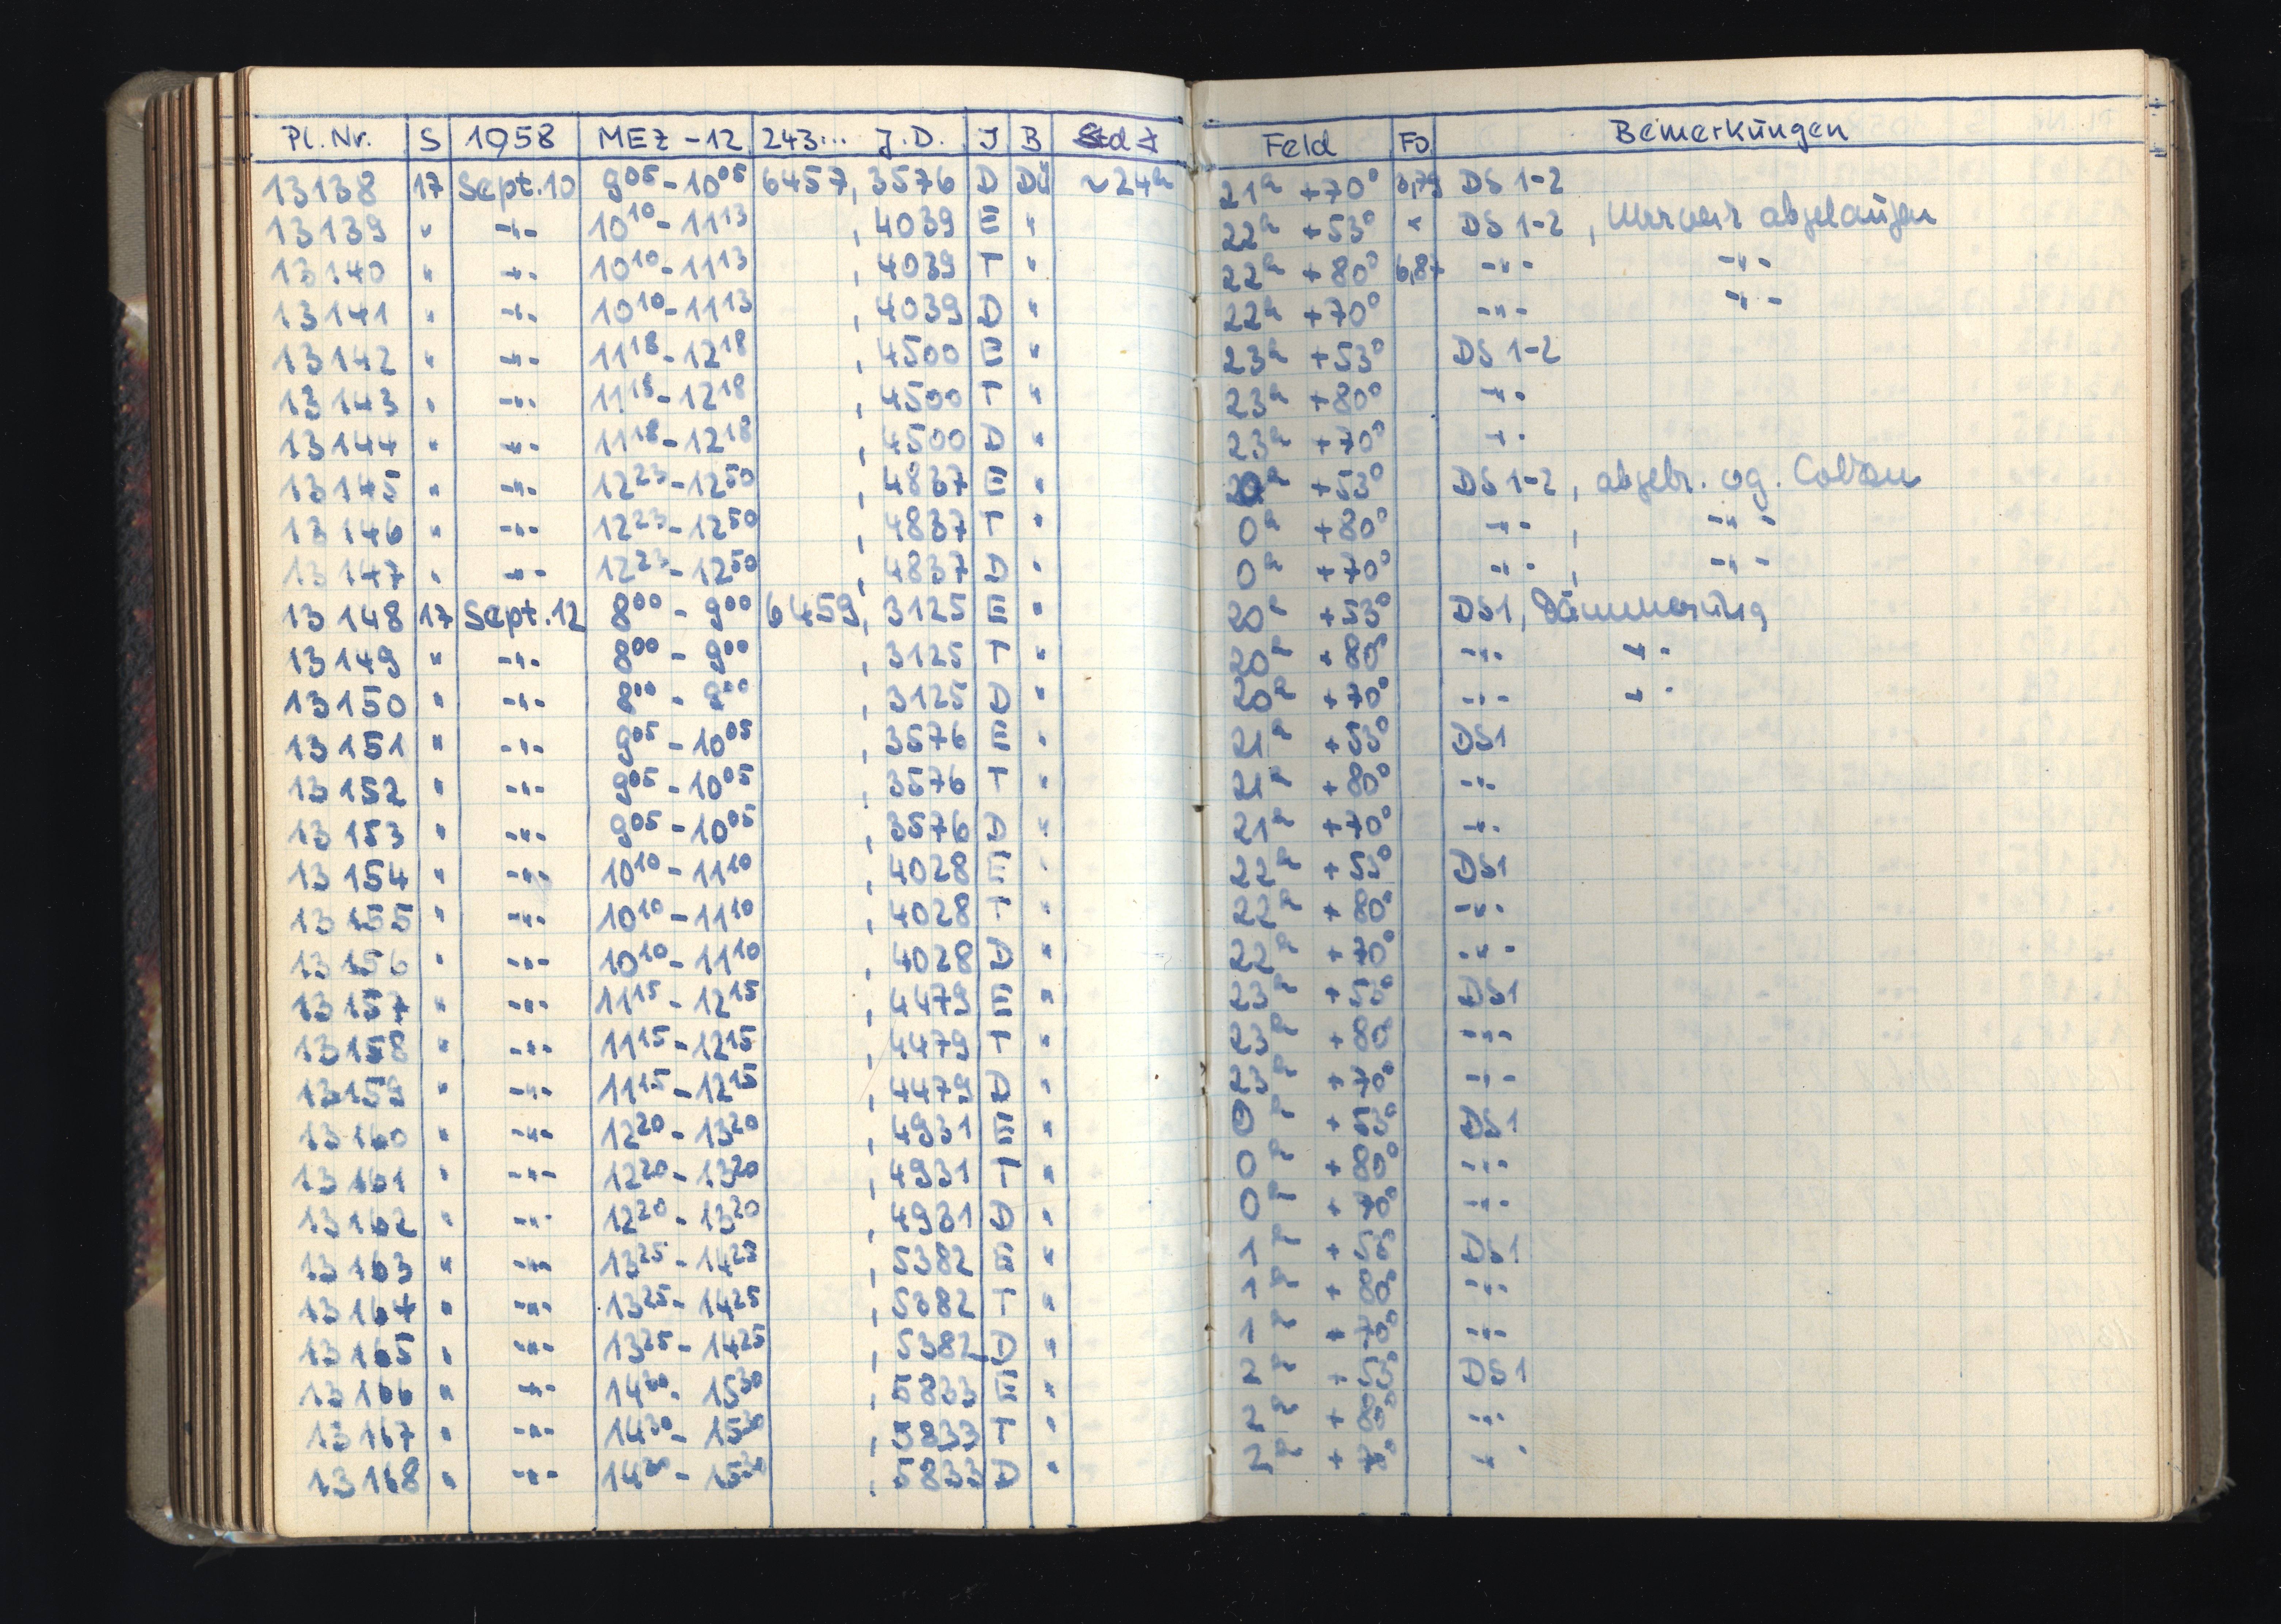 Pl. Nr. S 1958 MEZ -12 243... J.D. J B Std ∢ Feld Fo. Bemerkungen
13138 17 Sept.10 9 05 - 10 05 6457, 3576 D Dü ~24h 21h +70° DS 1-2
13139 " -"- 10 10 - 11 13 , 4039 E " 22h +53° " DS 1-2 , abgelaufen
13140 " -"- 10 10 - 11 13 , 4039 T " 22h +80° -"- -"-
13141 " -"- 10 10 - 11 13 , 4039 D " 22h +70° -"- -"-
13142 " -"- 11 18 - 12 18 , 4500 E " 23h +53° DS 1-2
13143 " -"- 11 18 - 12 18 , 4500 T " 23h +80° -"-
13144 " -"- 11 18 - 12 18 , 4500 D " 23h +70° -"-
13145 " -"- 12 23 - 12 50 , 4837 E " 0h +53° DS 1-2 , abgebr.
13146 " -"- 12 23 - 12 50 , 4837 T " 0h +80° -"- , -"-
13147 " -"- 12 23 - 12 50 , 4837 D " 0h +70° -"- , -"-
13148 17 Sept.12 8 00 - 9 00 6459, 3125 E " 20h +53° DS1, Dämmerung
13149 " -"- 8 00 - 9 00 , 3125 T " 20h +80° -"- -"-
13150 " -"- 8 00 - 9 00 , 3125 D " 20h +70° -"- -"-
13151 " -"- 9 05 - 10 05 , 3576 E " 21h +53° DS1
13152 " -"- 9 05 - 10 05 , 3576 T " 21h +80° -"-
13153 " -"- 9 05 - 10 05 , 3576 D " 21h +70° -"-
13154 " -"- 10 10 - 11 10 , 4028 E " 22h +53° DS1
13155 " -"- 10 10 - 11 10 , 4028 T " 22h +80° -"-
13156 " -"- 10 10 - 11 10 , 4028 D " 22h +70° -"-
13157 " -"- 11 15 - 12 15 , 4479 E " 23h +53° DS1
13158 " -"- 11 15 - 12 15 , 4479 T " 23h +80 -"-
13159 " -"- 11 15 - 12 15 , 4479 D " 23h +70° -"-
13160 " -"- 12 20 - 13 20 , 4931 E " 0h +53° DS1
13161 " -"- 12 20 - 13 20 , 4931 T " 0h +80° -"-
13162 " -"- 12 20 - 13 20 , 4931 D " 0h +70° -"-
13163 " -"- 13 25 - 14 25 , 5382 E " 1h +53° DS1
13164 " -"- 13 25 - 14 25 , 5382 T " 1h +80° -"-
13165 " -"- 13 25 - 14 25 , 5382 D " 1h +70° -"-
13166 " -"- 14 30 - 15 30 , 5833 E " 2h +53° DS1
13167 " -"- 14 30 - 15 30 , 5833 T " 2h +80° -"-
13168 " -"- 14 30 - 15 30 , 5833 D " 2h +70° -"-